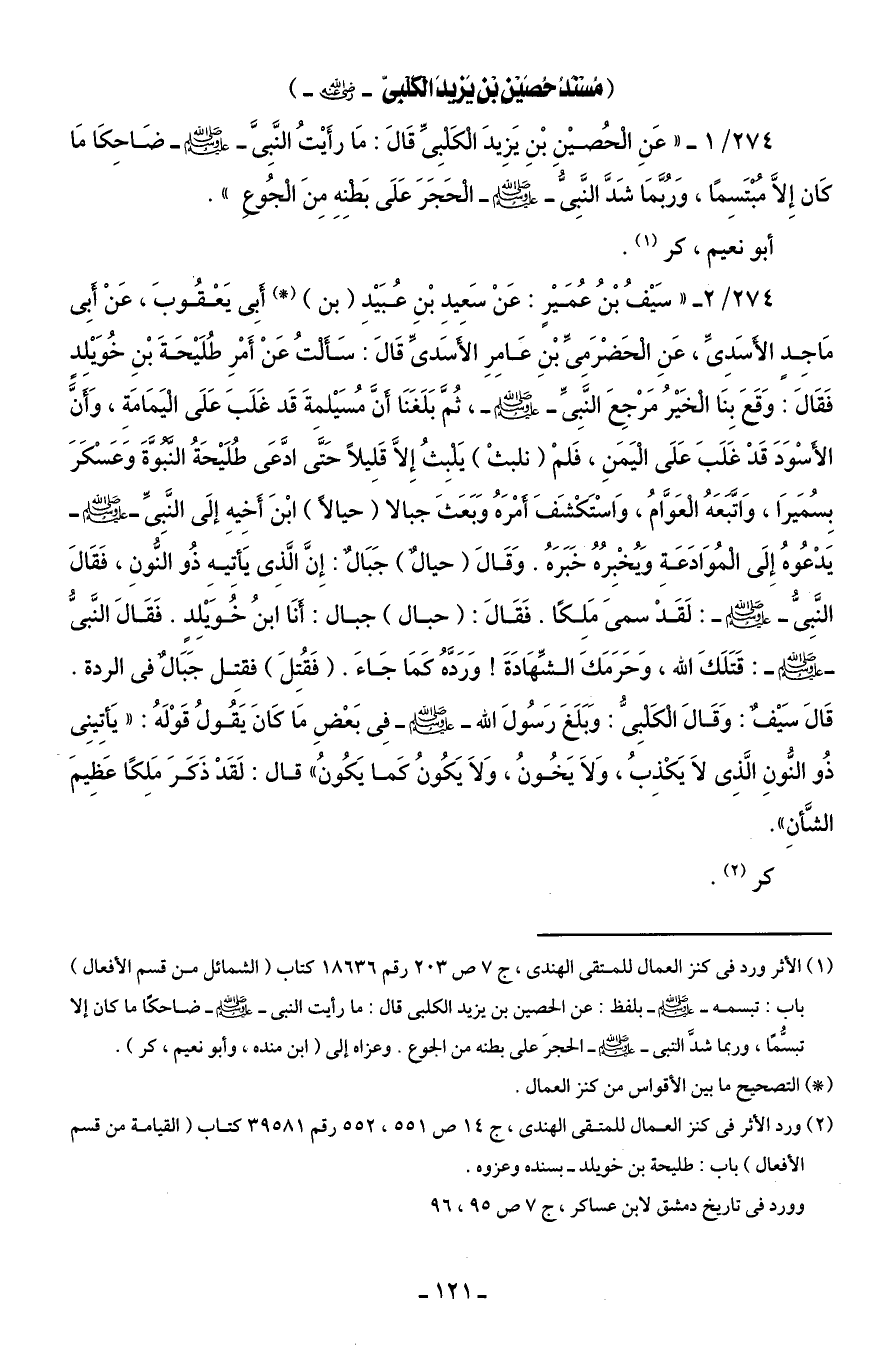 ( مُسْنَدُ حُصَيْنِ بْنِ يَزِيدَ الكَلْبِىِّ - رضي الله عنه - )
٢٧٤/ ١ - « عَنِ الْحُصَيْنِ بْنِ يَزِيدَ الكَلْبِىِّ قَالَ : مَا رَأَيْتُ النَّبِىَّ - ﷺ - ضَاحِكَا مَا
كَان إِلاَّ مُبْتَسِمًا ، وَرُبَّمَا شَدَّ النَّبِىُّ - ﷺ - الْحَجَرَ عَلَى بَطْنِهِ مِنَ الْجُوعِ » .
أبو نعيم ، كر (١) .
٢٧٤/ ٢- « سَيْفُ بْنُ عُمَيْرٍ : عَنْ سَعِيدِ بْنِ عُبَيْدٍ ( بن ) (*) أَبِى يَعْقُوبَ ، عَنْ أَبِى
مَاجِدٍ الأَسَدِىِّ ، عَنِ الْحَضْرَمِىِّ بْنِ عَامِرٍ الأَسَدِىِّ قَالَ : سَأَلْتُ عَنْ أَمْرِ طُلَيْحَةَ بْنِ خُوَيْلِدٍ
فَقَالَ : وَقَعَ بِنَا الْخَيْرُ مَرْجِعَ النَّبِىِّ - ﷺ - ، ثُمَّ بَلَغَنَا أَنَّ مُسَيْلِمةَ قَد غَلَبَ عَلَى الْيَمَامَةِ ، وَأَنَّ
الأَسْوَدَ قَدْ غَلَبَ عَلَى الْيَمَنِ ، فَلَمْ ( نلبثْ ) يَلْبثُ إِلاَّ قَلِيلاً حَتَّى ادَّعَى طُلَيْحَةُ النُّبُوَّةَ وَعَسْكَرَ
بِسُمَيَرَا ، وَاتَّبَعَهُ الْعَوَّامُ ، وَاسْتَكْشَفَ أَمْرَهُ وَبَعَثَ جبالا ( حيالاً ) ابْنَ أَخِيهِ إِلَى النَّبِىِّ - ﷺ -
يَدْعُوهُ إِلَى الْمُوَادَعَةِ وَيُخْبِرُهُ خَبَرَهُ . وَقَالَ ( حيالٌ ) جَبَالٌ : إِنَّ الَّذِى يَأتيهِ ذُو النُّونِ ، فَقَالَ
النَّبِىُّ - ﷺ - : لَقَدْ سمىَ مَلِكًا . فَقَالَ : ( حبال ) جبال : أَنَا ابنُ خُوَيْلِدٍ . فَقَالَ النَّبِىُّ
- ﷺ - : قَتَلَكَ الله ، وَحَرَمَكَ الشَّهَادَةَ ! وَرَدَّهُ كَمَا جَاءَ . ( فَقُتِلَ ) فقتل جَبَالٌ فى الردة .
قَالَ سَيْفٌ : وَقَالَ الْكَلْبِىُّ : وَبَلَغَ رَسُولَ الله - ﷺ - فِى بَعْضِ مَا كَانَ يَقُولُ قَوْلَهُ : « يَأتِينِى
ذُو النُّونِ الَّذِى لاَ يَكْذِبُ ، وَلاَ يَخُونُ ، وَلاَ يَكُونُ كَمَا يَكُونُ» قال : لَقَدْ ذَكَرَ مَلِكًا عَظِيمَ
الشَّأنِ».
كر (٢) .
(١) الأثر ورد فى كنز العمال للمتقى الهندى ، ج ٧ ص ٢٠٣ رقم ١٨٦٣٦ كتاب ( الشمائل من قسم الأفعال )
باب : تبسمه - ﷺ - بلفظ : عن الحصين بن يزيد الكلبى قال : ما رأيت النبى - ﷺ - ضاحكًا ما كان إلا
تبسُّمًا ، وربما شدَّ النبى - ﷺ - الحجرَ على بطنه من الجوع . وعزاه إلى ( ابن منده ، وأبو نعيم ، كر ) .
(*) التصحيح ما بين الأقواس من كنز العمال .
(٢) ورد الأثر فى كنز العمال للمتقى الهندى ، ج ١٤ ص ٥٥١ ، ٥٥٢ رقم ٣٩٥٨١ كتاب ( القيامة من قسم
الأفعال ) باب : طليحة بن خويلد - بسنده وعزوه .
وورد فى تاريخ دمشق لابن عساكر ، ج ٧ ص ٩٥ ، ٩٦
- ١٢١ -